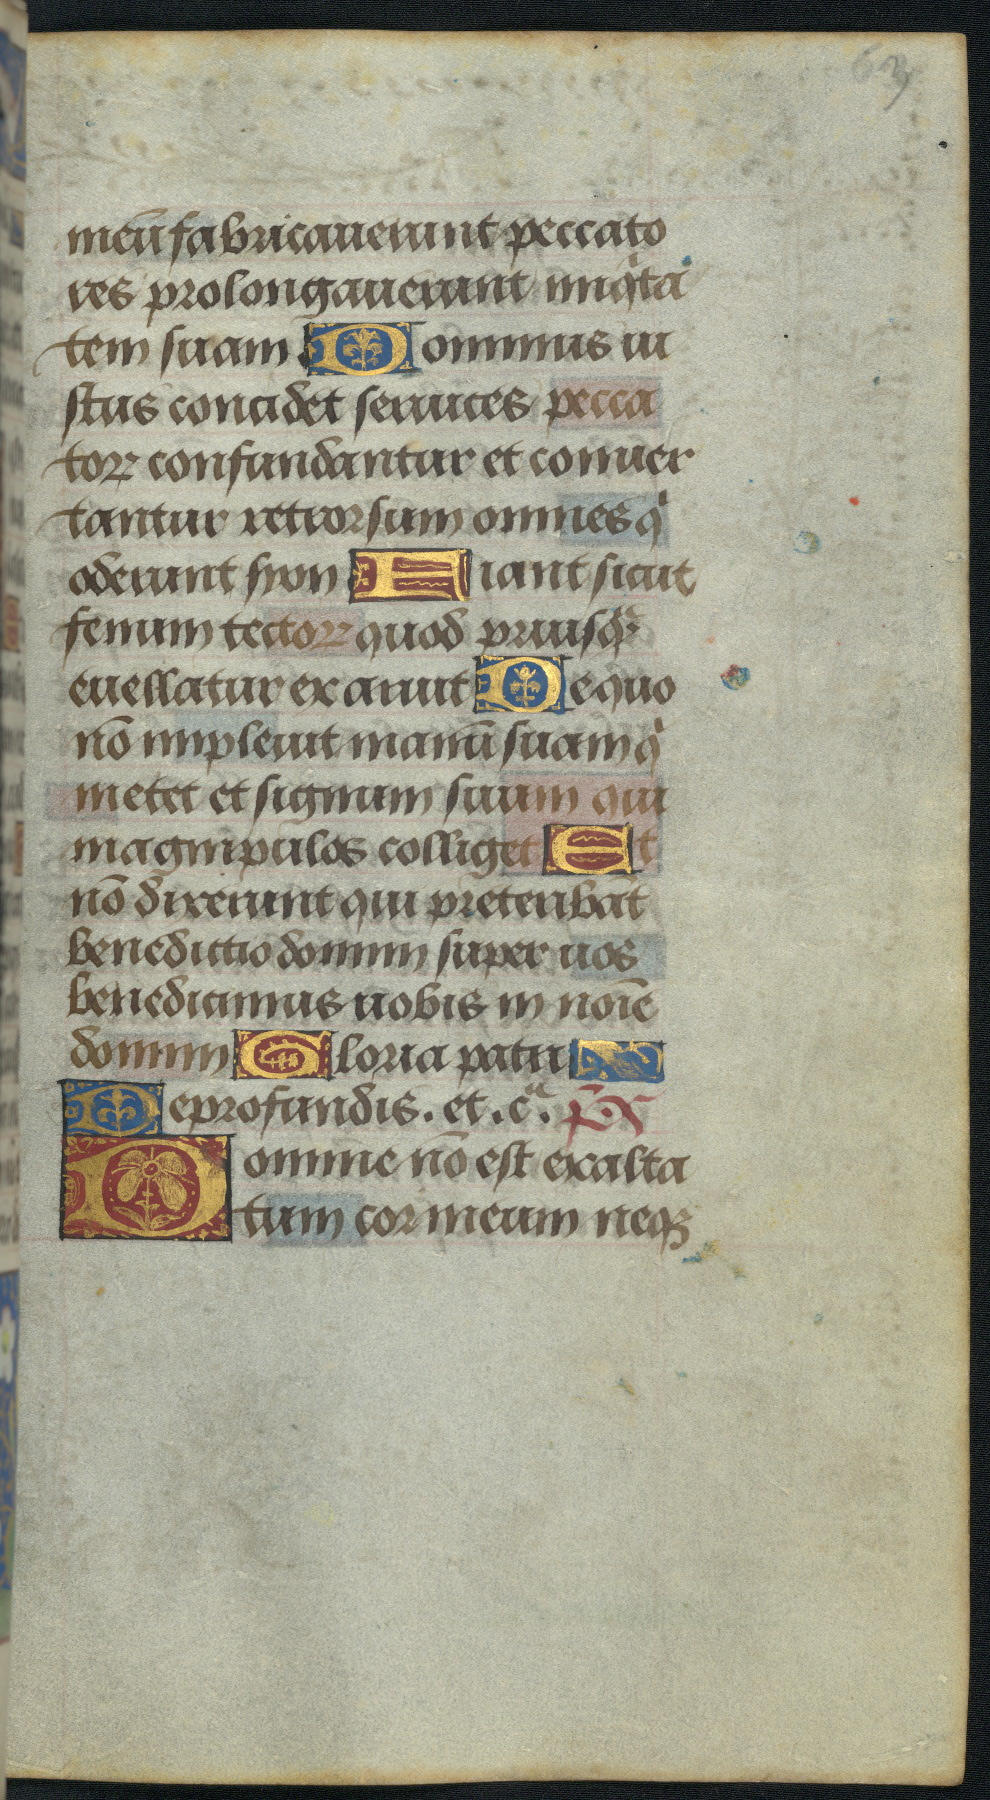 63
meū fabricauerunt peccato
res prolongauerunt iniqͥta
tem suam Dominus iu
stus concidet ceruices pecca
toꝝ confundantur et conuer
tantur retrorsum omnes qͥ
oderunt syon Fiant sicut
fenum tectoꝝ quod priusqͣ
euellatur exaruit De quo
nō impleuit manū suam qͥ
metet et signum suum qui
magnipulos colliget Et
nō dixerunt qui preteribāt
benedictio domini super uos
benedicimus uobis in noīe
domini Gloria patri
De profundis . et . cͣ. ps
Domine nō est exalta
tum cor meum neqꝫ